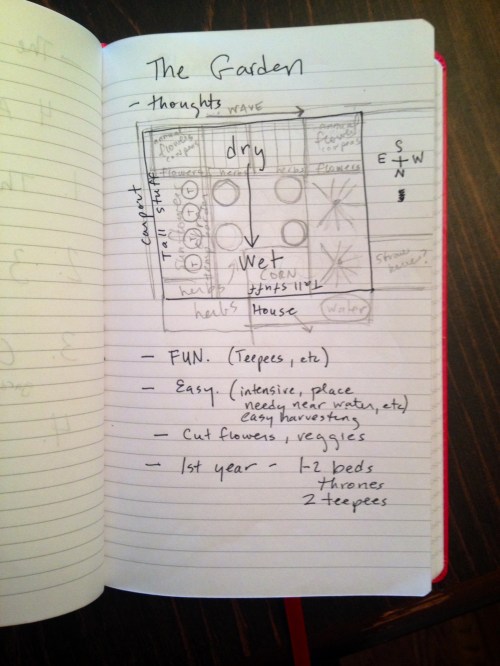 The Garden
- thoughts
WAVE
annual
flowers
compass
dry
flowers
herbs
herbs
flowers
S
E W
N
carport
Tall Stuff
T
T
T
T
Wet
CORN
Tall Stuff
herbs
herbs
House
water
- FUN. (Teepees, etc)
- Easy. (intensive, place
needy near water, etc)
easy harvesting
- Cut flowers, veggies
- 1st year - 1-2 beds
thrones
2 teepees